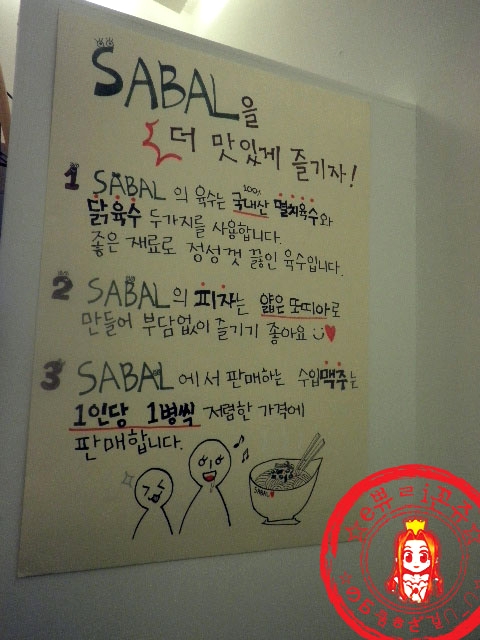 SABAL을
더 맛있게 즐기자!
1 SABAL의 육수는 100% 국내산 멸치육수와
닭육수 두가지를 사용합니다.
좋은 재료로 정성껏 끓인 육수입니다.
2 SABAL의 피자는 얇은 또띠아로
만들어 부담없이 즐기기 좋아요
3 SABAL에서 판매하는 수입맥주는
1인당 1병씩 저렴한 가격에
판매합니다.
SABAL